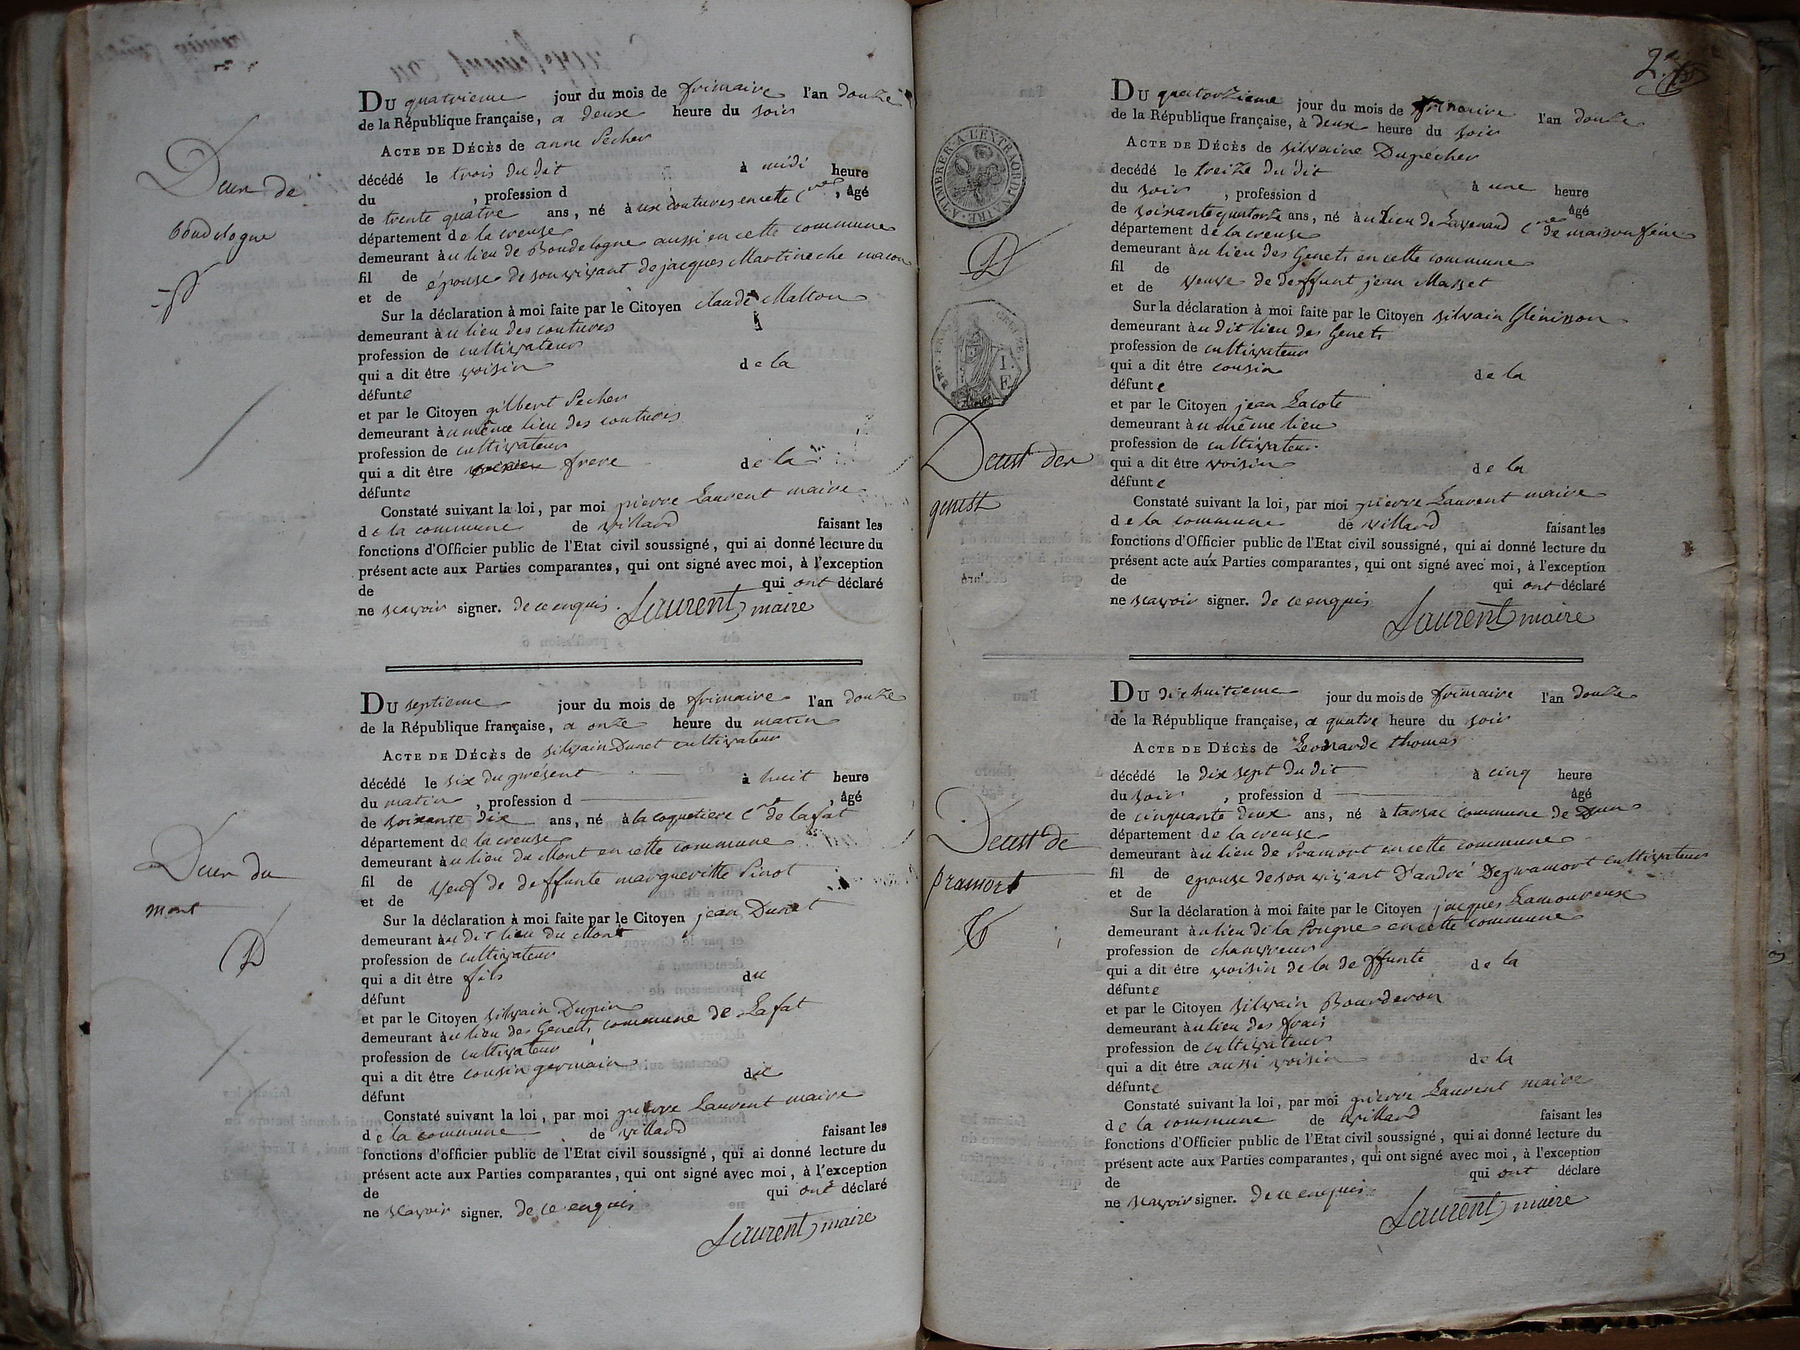 Du quatrieme jour du mois de frimaire l'an douze
de la République française, a deux heure du soir
Acte de Décès de anne Pecher
décédé le trois du dit à midi heure
du , profession d , âgé
de trente quatre ans, né à ux coutures en cette Cne
département de la creuse
demeurant au lieu de Boudelogne aussi en cette commune
fil de
et de épouse de son vivant de jacques Martineche macon
Sur la déclaration à moi faite par le Citoyen claude Malton
demeurant au lieu des coutures
profession de cultivateur
qui a dit être voisin de la
défunte
et par le Citoyen gilbert Pecher
demeurant au même lieu des coutures
profession de cultivateur
qui a dit être frere de la
défunte
Constaté suivant la loi, par moi pierre Laurent maire
de la commune de villard faisant les
fonctions d'Officier public de l'Etat civil soussigné, qui ai donné lecture du
présent acte aux Parties comparantes, qui ont signé avec moi, à l'exception
de qui ont déclaré
ne scavoir signer. de ce enquis. Laurent maire
boudelogne
Du septieme jour du mois de frimaire l'an douze
de la République française, a onze heure du matin
Acte de Décès de silvain Dunet cultivateur
décédé le six du présent à huit heure
du matin , profession d , âgé
de soixante dix ans, né à la coquetiere Cne de lafat
département de la creuse
demeurant au lieu du Mont en cette commune
fil de
et de veuf de deffunte margueritte Pinot
Sur la déclaration à moi faite par le Citoyen jean Dunet
demeurant au dit lieu du Mont
profession de cultivateur
qui a dit être fils du
défunt
et par le Citoyen silvain Dupin
demeurant au lieu des Genets commune de Lafat
profession de cultivateur
qui a dit être cousin germain du
défunt
Constaté suivant la loi, par moi pierre Laurent maire
de la commune de villard faisant les
fonctions d'officier public de l'Etat civil soussigné, qui ai donné lecture du
présent acte aux Parties comparantes, qui ont signé avec moi, à l'exception
de qui ont déclaré
ne scavoir signer. de ce enquis
Laurent maire
mont
2e
Du quatorzieme jour du mois de frimaire l'an douze
de la République française, à deux heure du soir
Acte de Décès de silvaine Dupecher
décédé le treize du dit à une heure
du soir , profession d âgé
de soixante quatorze ans, né à u lieu de Lavenaud Cne de maison feine
département de la creuse
demeurant au lieu des Genets en cette commune
fil de
et de veuve de deffunt jean Masset
Sur la déclaration à moi faite par le Citoyen silvain Glénisson
demeurant au dit lieu des Genets
profession de cultivateur
qui a dit être cousin de la
défunte
et par le Citoyen jean Lacote
demeurant au même lieu
profession de cultivateur
qui a dit être voisin de la
défunte
Constaté suivant la loi, par moi pierre Laurent maire
de la commune de villard faisant les
fonctions d'Officier public de l'Etat civil soussigné, qui ai donné lecture du
présent acte aux Parties comparantes, qui ont signé avec moi, à l'exception
de qui ont déclaré
ne scavoir signer. de ce enquis
Laurent maire
A TIMBRER A L'EXTRAORDINAIRE
genest
Du dix huitieme jour du mois de frimaire l'an douze
de la République française, a quatre heure du soir
Acte de Décès de Leonarde thomas
décédé le dix sept du dit à cinq heure
du soir , profession d âgé
de cinquante deux ans, né à tarsac commune de Dun
département de la creuse
demeurant au lieu de Pramort en cette commune
fil de
et de epouse de son vivant d'andré Depramort cultivateur
Sur la déclaration à moi faite par le Citoyen jacques Lamoureuse
demeurant au lieu de la Pougne en cette commune
profession de chanvreur
qui a dit être voisin de la deffunte de la
défunte
et par le Citoyen silvain Bourderon
demeurant au lieu des frais
profession de cultivateur
qui a dit être aussi voisin de la
défunte
Constaté suivant la loi, par moi pierre Laurent maire
de la commune de villard faisant les
fonctions d'Officier public de l'Etat civil soussigné, qui ai donné lecture du
présent acte aux Parties comparantes, qui ont signé avec moi, à l'exception
de qui ont déclare
ne scavoir signer. de ce enquis
Laurent maire
pramort